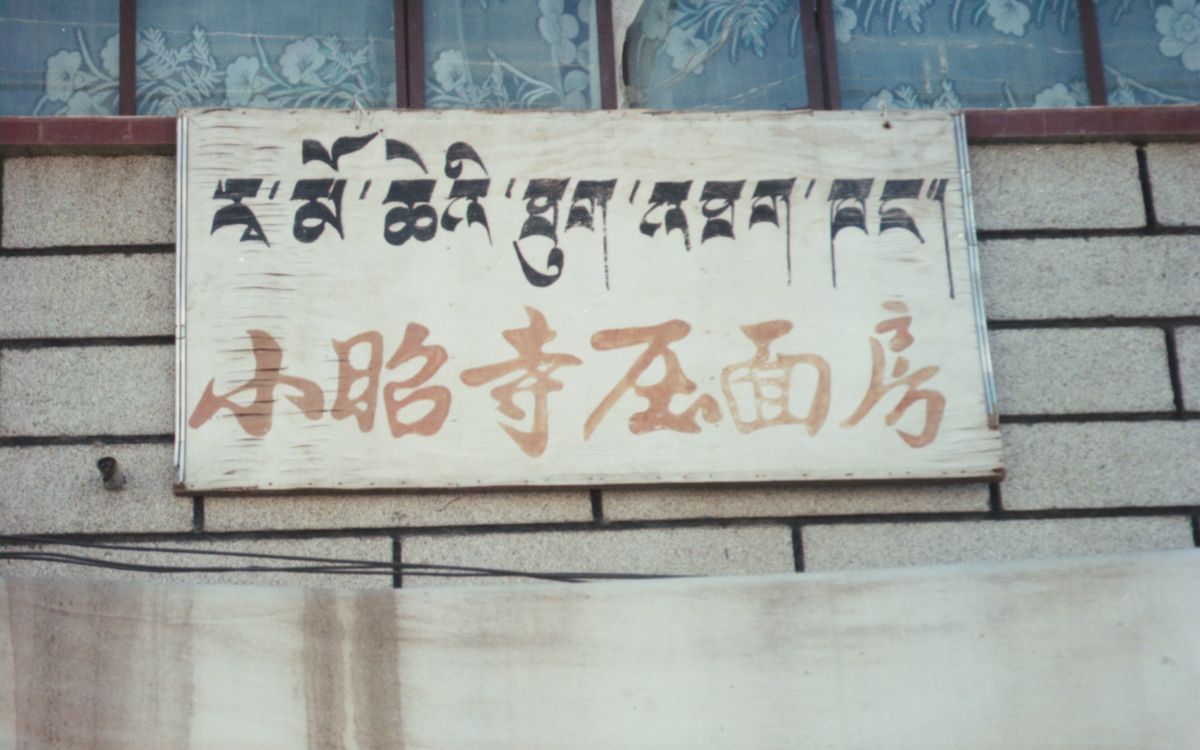 ར་མོ་ཆེའི་ཐུག་འཐག་ཁང༌།
小昭寺压面房